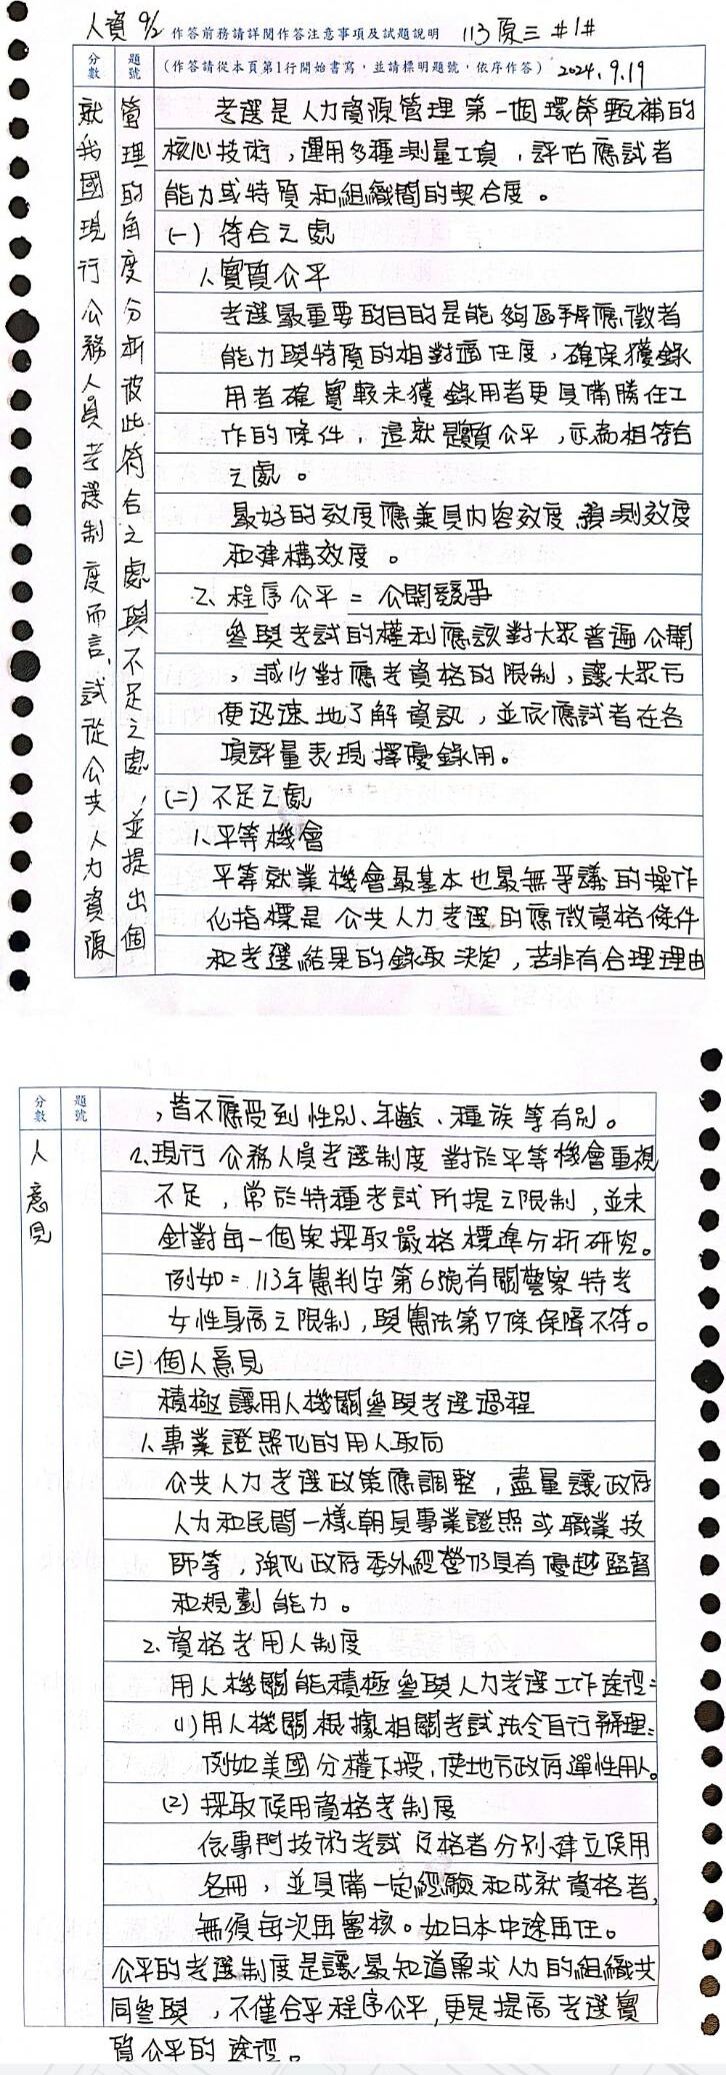 人資 9/2 作答前務請詳閱作答注意事項及試題說明 113原三 #1#
分數 題號 (作答請從本頁第1行開始書寫,並請標明題號,依序作答) 2024.9.19
就我國現行公務人員考選制度而言,試從公共人力資源
管理的角度分析彼此符合之處與不足之處,並提出個
考選是人力資源管理第一個環節甄補的
核心技術,運用多種測量工具,評估應試者
能力或特質和組織間的契合度。
(一) 符合之處
1、實質公平
考選最重要的目的是能夠區辨應徵者
能力與特質的相對適任度,確保獲錄
用者確實較未獲錄用者更具備勝任工
作的條件,這就是實質公平,亦為相符合
之處。
最好的效度應兼具內容效度、預測效度
和建構效度。
2、程序公平=公開競爭
參與考試的權利應該對大眾普遍公開
,減少對應考資格的限制,讓大眾方
便迅速地了解資訊,並依應試者在各
項評量表現擇優錄用。
(二) 不足之處
1、平等機會
平等就業機會最基本也最無爭議的操作
化指標是公共人力考選的應徵資格條件
和考選結果的錄取決定,若非有合理理由
分數 題號
人意見
,皆不應受到性別、年齡、種族等有別。
2、現行公務人員考選制度對於平等機會重視
不足,常於特種考試所提之限制,並未
針對每一個案採取嚴格標準分析研究。
例如=113年憲判字第6號有關警察特考
女性身高之限制,與憲法第7條保障不符。
(三) 個人意見
積極讓用人機關參與考選過程
1、專業證照化的用人取向
公共人力考選政策應調整,盡量讓政府
人力和民間一樣朝具專業證照或職業技
師等,強化政府委外經營仍具有優越監督
和規劃能力。
2、資格考用人制度
用人機關能積極參與人力考選工作途徑:
(1)用人機關根據相關考試法令自行辦理:
例如美國分權下授,使地方政府彈性用人。
(2) 採取候用資格考制度
依專門技術考試及格者分別建立候用
名冊,並具備一定經驗和成就資格者,
無須每次再審核。如日本中途再任。
公平的考選制度是讓最知道需求人力的組織共
同參與,不僅合乎程序公平,更是提高考選實
質公平的途徑。